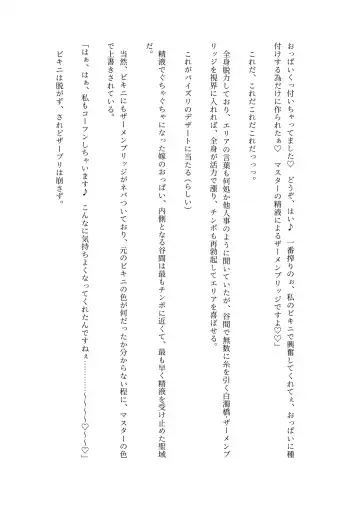 おっぱいくっ付いちゃってました♡　どうぞ、はい♪　一番搾りのぉ、私のビキニで興奮してくれてぇ、おっぱいに種
付けする為だけに作られたぁ♡　マスターの精液によるザーメンブリッジですよ♡♡」
これだ、これだこれだこれだっっっ。
全身脱力しており、エリアの言葉も何処か他人事のように聞いていたが、谷間で無数に糸を引く白濁橋・ザーメンブ
リッジを視界に入れれば、全身が活力で漲り、チンポも再勃起してエリアを喜ばせる。
これがパイズリのデザートに当たる（らしい）
精液でぐちゃぐちゃになった嫁のおっぱい、内側となる谷間は最もチンポに近くて、最も早く精液を受け止めた聖域
だ。
当然、ビキニにもザーメンブリッジがネバついており、元のビキニの色が何だったか分からない程に、マスターの色
で上書きされている。
「はぁ、はぁ、私もコーフンしちゃいます♪　こんなに気持ちよくなってくれたんですねぇ………～～～♡～～♡」
ビキニは脱がず、されどザーブリは崩さず。